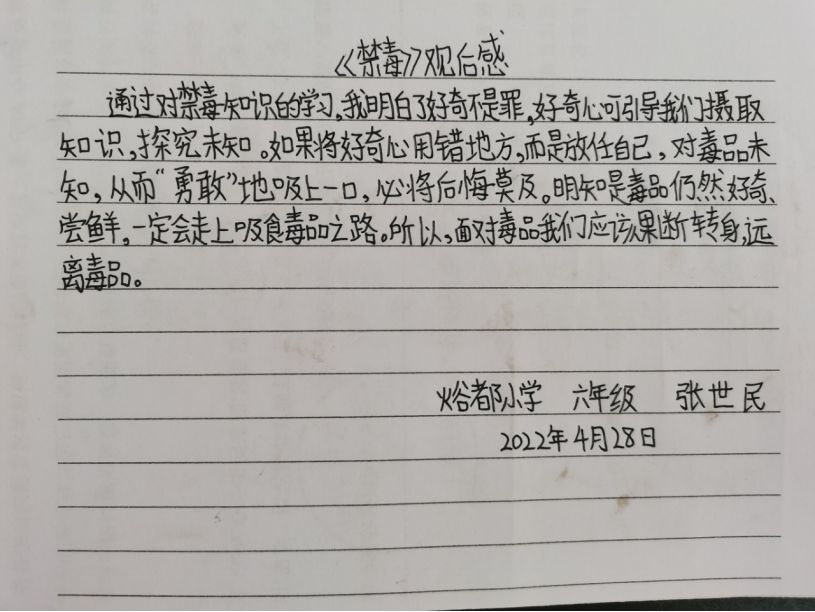 《禁毒》观后感
通过对禁毒知识的学习,我明白了好奇不是罪,好奇心可引导我们摄取
知识,探究未知。如果将好奇心用错地方,而是放任自己,对毒品未
知,从而“勇敢”地吸上一口,必将后悔莫及。明知是毒品仍然好奇、
尝鲜,一定会走上吸食毒品之路。所以,面对毒品我们应该果断转身,远
离毒品。
焀都小学 六年级 张世民
2022年4月28日